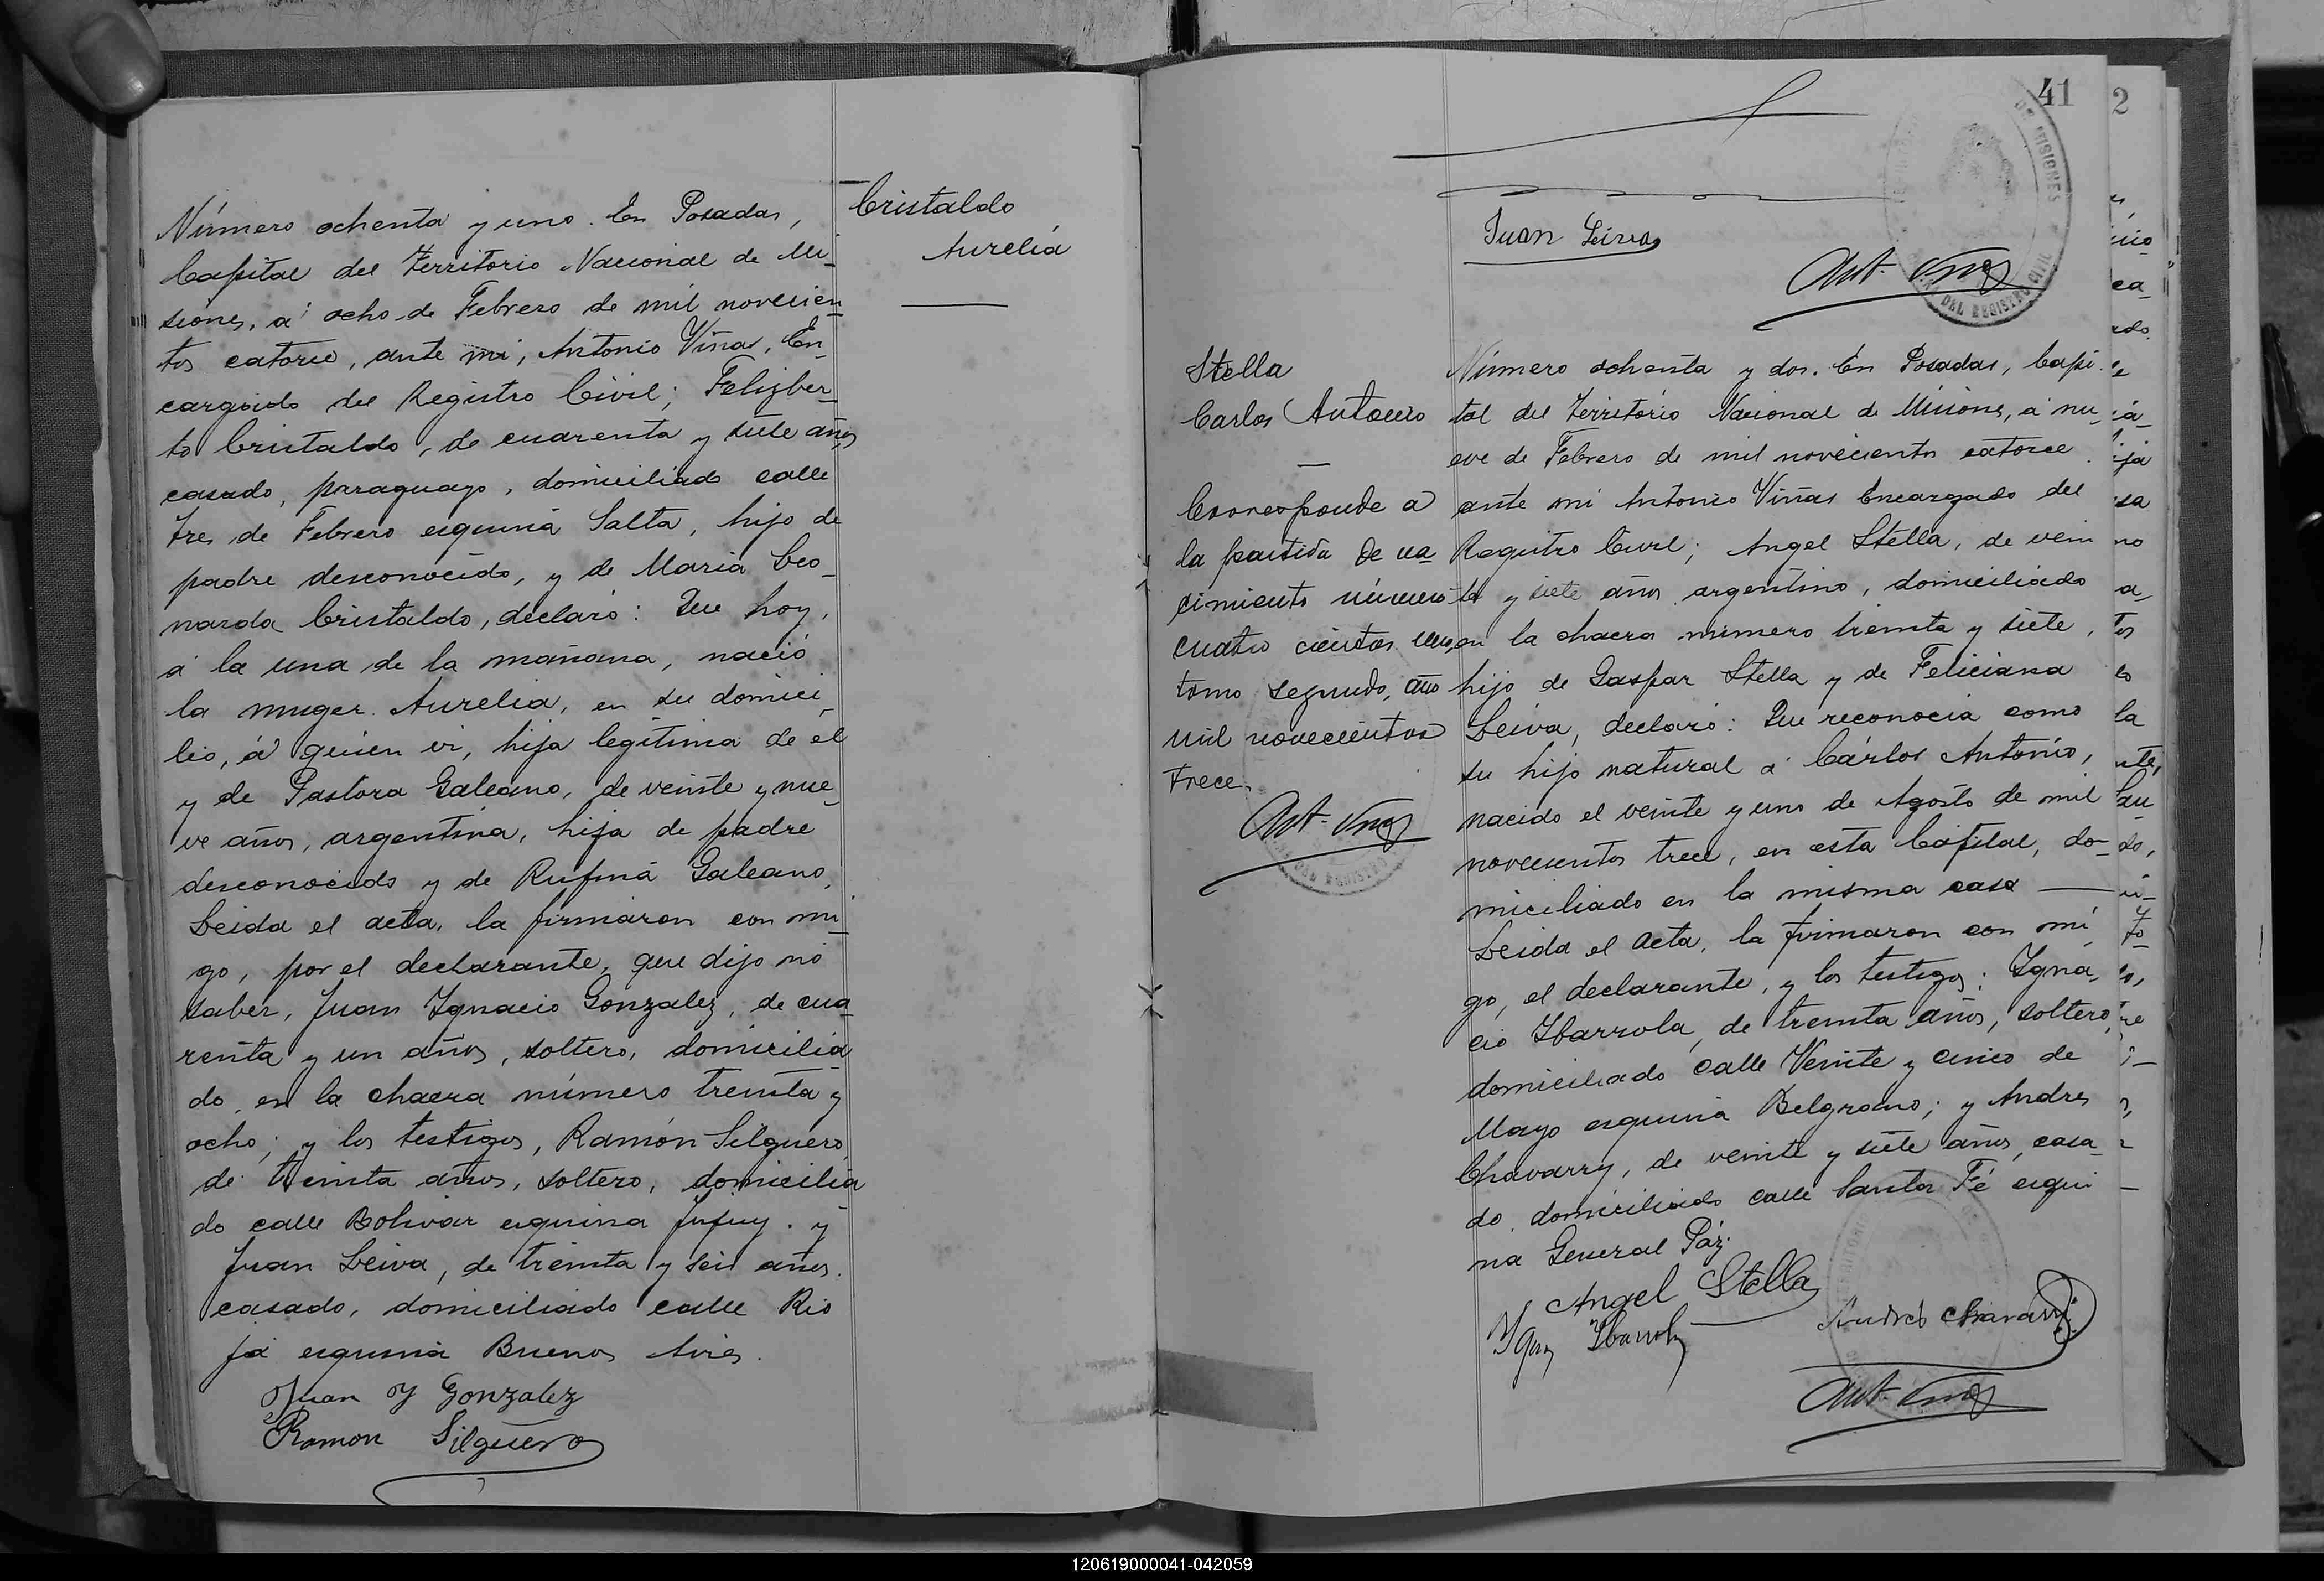 Número ochenta y uno. En Posadas,
Capital del Territorio Nacional de Mi_
siones, á ocho de Febrero de mil novecien_
tos catorce, ante mi, Antonio Viñas, En_
cargado del Registro Civil; Felizber_
to Cristaldo, de cuarenta y siete años
casado, paraguayo, domiciliado calle
tres de Febrero esquina Salta, hijo de
padre desconocido, y de Maria Leo_
narda Cristaldo, declaró: Que hoy,
á la una de la mañana, nació
la muger Aurelia, en su domici_
lio, á quien vi, hija legítima de el
y de Pastora Galeano, de veinte y nue_
ve años, argentina, hija de padre
desconocido y de Rufina Galeano,
Leida el acta, la firmaron con mi_
go, por el declarante, que dijo no
saber, Juan Ygnacio Gonzalez, de cua_
renta y un años, soltero, domicilia
do, en la chacra número treinta y
ocho; y los testigos, Ramón Silguero,
de treinta años, soltero, domicilia
do calle Bolivar esquina Jujuy. y
Juan Leiva, de treinta y seis años.
casado, domiciliado calle Rio
ja esquina Buenos Aires.
Juan Y Gonzalez
Ramon Silguero
Cristaldo
Aurelia
41
2
Juan Leiva
Ant. Vinas
DEL REGISTRO CIVIL
MISIONES
Stella
Carlos Antonio
Corresponde a
la partida de na
cimiento número
cuatro cientos uno,
tomo segundo, año
mil novecientos
trece.
Ant. Vinas
Número ochenta y dos. En Posadas, Capi_
tal del Territorio Nacional de Misiones, á nu_
eve de Febrero de mil novecientos catorce.
ante mi Antonio Viñas Encargado del
Registro Civil; Angel Stella, de vein
te y siete años argentino, domiciliado
en la chacra número treinta y siete,
hijo de Gaspar Stella y de Feliciana
Leiva, declaró: Que reconocia como
su hijo natural á Cárlos Antonio,
nacido el veinte y uno de Agosto de mil
novecientos trece, en esta Capital, do_
miciliado en la misma casa
Leida el acta, la firmaron con mi_
go, el declarante, y los testigos: Ygna_
cio Ybarrola, de treinta años, soltero,
domiciliado calle Veinte y cinco de
Mayo esquina Belgrano; y Andres
Chavarry, de veinte y siete años, casa_
do, domiciliado calle Santa Fé esqui_
na General Paz.
Angel Stella
Ygn Ybarrola
Andrés Chavarri
Ant. Vinas
120619000041-042059